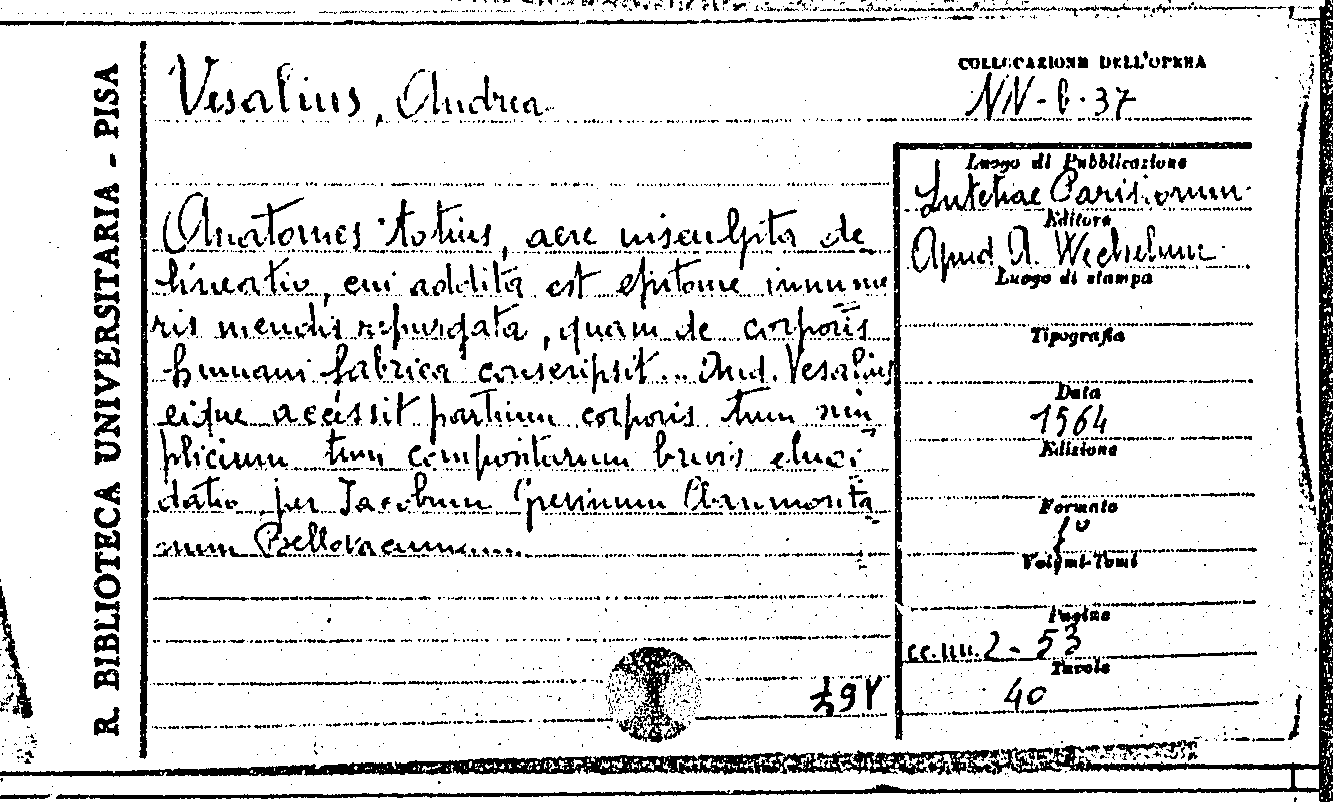 R. BIBLIOTECA UNIVERSITARIA - PISA
Vesalius, Andrea
COLLOCAZIONE DELL'OPERA
NN-6-37
Anatomes totius, aere insculpta de
lineatio, cui addita est epitome innume
ris mendis repurgata, quam de corporis
humani fabrica conscripsit... And. Vesalius
eique accessit partium corporis tum sim
plicium tum compositarum brevis eluci
datio per Jacobum Grevinum Claromonta
num Bellovacum
Luogo di Pubblicazione
Lutetiae Parisiorum
Editore
Apud A. Wechelum
Luogo di stampa
Tipografia
Data
1564
Edizione
Formato
f°
Volumi-Tomi
Pagine
cc.nn. 2 - 53
Tavole
40